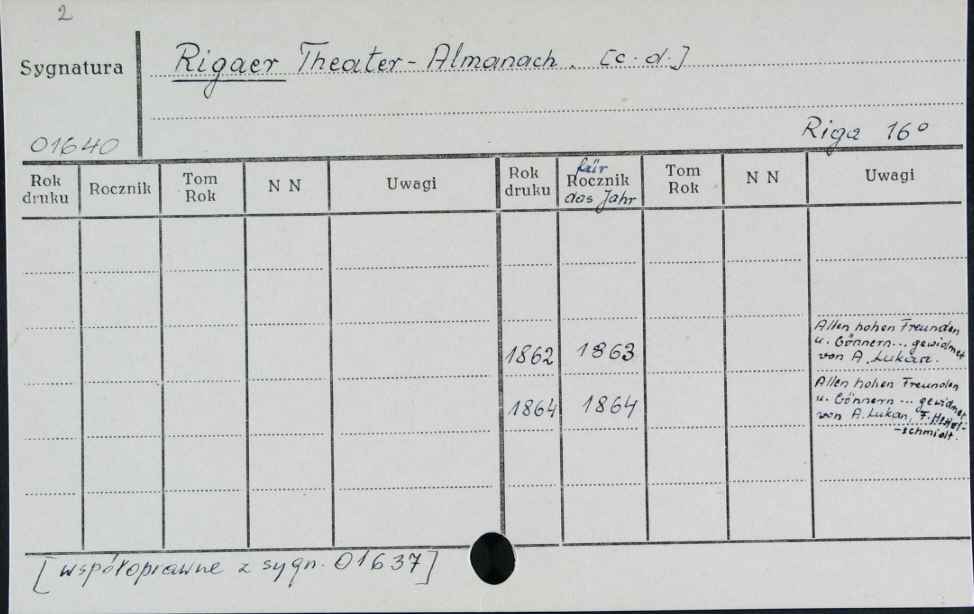 2
Sygnatura
Rigaer Theater-Almanach. [c.d.]
01640
Riga 16°
Rok druku
Rocznik
Tom Rok
N N
Uwagi
Rok druku
für Rocznik das Jahr
Tom Rok
N N
Uwagi
1862 1863
Allen hohen Freunden
u. Gönnern... gewidmet
von A. Lukan.
1864 1864
Allen hohen Freunden
u. Gönnern... gewidmet
von A. Lukan, F.
-schmidt.
[współoprawne z sygn. 01637]